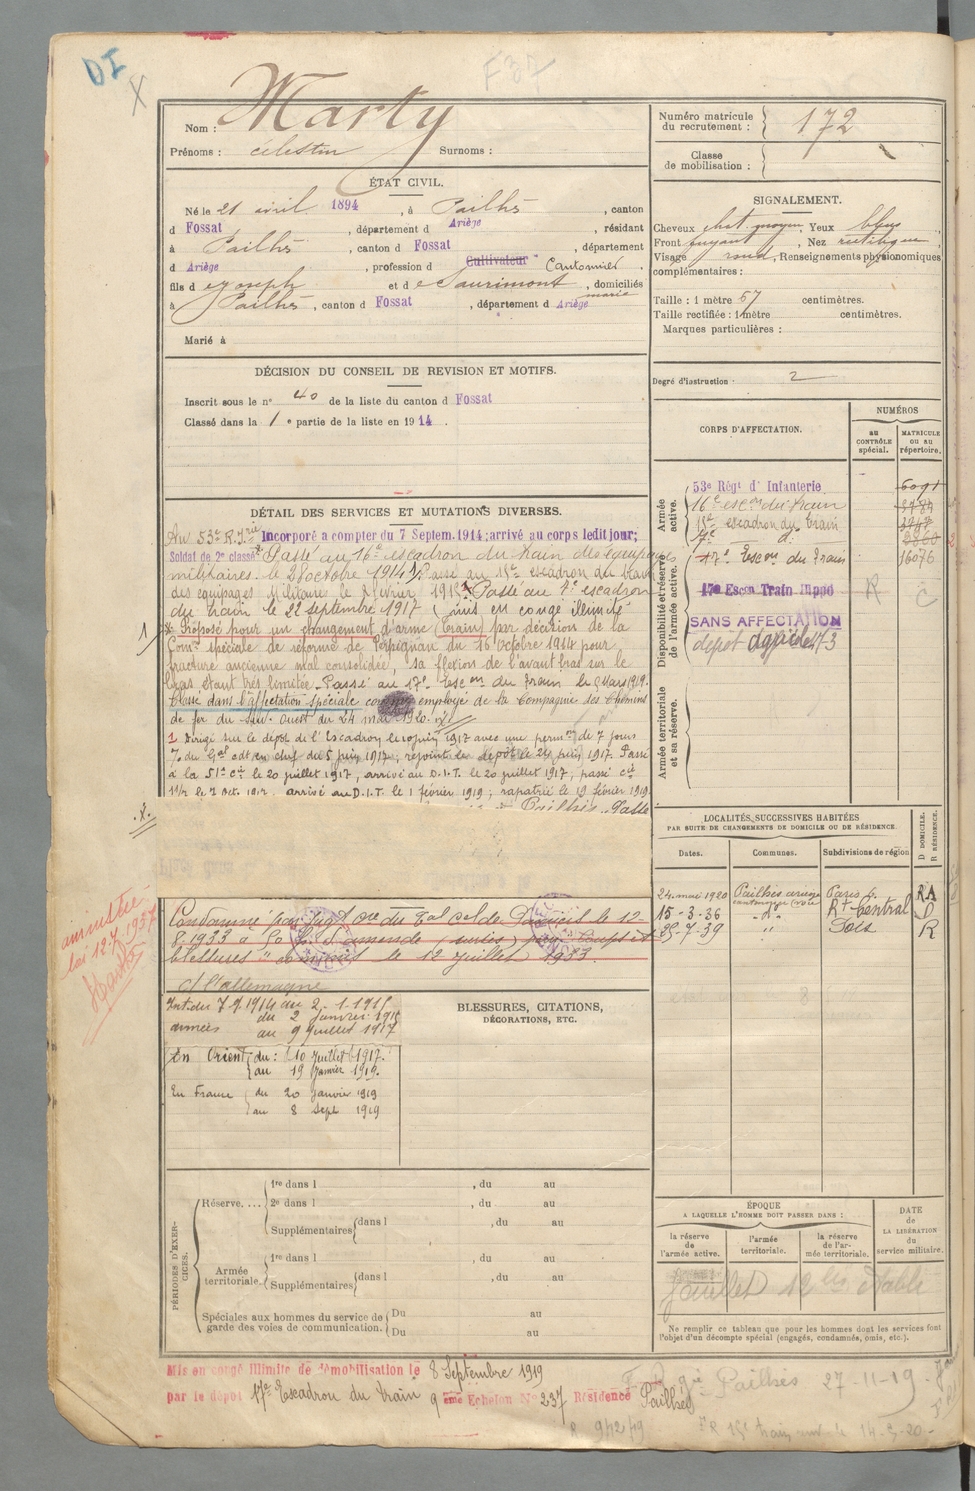 DI
X
F37
Nom : Marty
Prénoms : célestin Surnoms :
Numéro matricule du recrutement : 172
Classe de mobilisation :
ÉTAT CIVIL.
Né le 21 avril 1894, à Pailhès, canton
d Fossat, département d Ariège, résidant
à Pailhès, canton d Fossat, département
d Ariège, profession d Cultivateur Cantonnier,
fils d e Joseph et d e Saurimont marie, domiciliés
à Pailhès, canton d Fossat, département d Ariège
Marié à
SIGNALEMENT.
Cheveux chat. moyen, Yeux bleus
Front fuyant, Nez rectiligne,
Visage rond, Renseignements physionomiques
complémentaires :
Taille : 1 mètre 57 centimètres.
Taille rectifiée : 1 mètre centimètres.
Marques particulières :
Degré d'instruction : 2
DÉCISION DU CONSEIL DE REVISION ET MOTIFS.
Inscrit sous le n° 40 de la liste du canton d Fossat
Classé dans la 1 e partie de la liste en 1914.
DÉTAIL DES SERVICES ET MUTATIONS DIVERSES.
Au 53e R.Irie Incorporé à compter du 7 Septem. 1914; arrivé au corps ledit jour;
Soldat de 2e classe Passé au 16e escadron du train des équipages
militaires le 28 octobre 1914. Passé au 15e escadron du train
des équipages Militaires le 2 février 1915. Passé au 7e escadron
du train le 22 septembre 1917 (mis en congé illimité
* Proposé pour un changement d'arme (Train) par décision de la
Comon spéciale de réforme de Perpignan du 16 octobre 1914 pour
fracture ancienne mal consolidée, sa flexion de l'avant bras sur le
bras étant très limitée. Passé au 17e Escon du Train le 9 Mars 1919.
Classé dans l'affectation spéciale comme employé de la Compagnie des Chemins
de fer du Sud. Ouest du 24 mai 1920.
1 Dirigé sur le dépôt de l'Escadron le 10 juin 1917 avec une permon de 7 jours
du Gal cdt en chef du 5 juin 1917; rejoint le dépôt le 24 juin 1917. Passé
à la 51e Cie le 20 juillet 1917, arrivé au D.I.T. le 20 juillet 1917, passé Cie
le 7 Oct. 1917, arrivé au D.I.T. le 1 février 1919; rapatrié le 19 février 1919
Pailhès. Passé
Condamné par Jugt du Bal c de Pamiers le 12-
8-1933 à 50 f. d'amende (sursis) pour coups et
blessures commis le 12 Juillet 1933.
amnistié
loi 12.7.1937
CORPS D'AFFECTATION.
NUMÉROS
au CONTRÔLE spécial.
MATRICULE ou au répertoire.
Armée active.
53e Régt d'Infanterie 6091
16e escon du train
15e escadron du train
7e d:
Disponibilité et réserve de l'armée active.
17e Escon du Train 16076
17e Escon Train
R C
SANS AFFECTATION
dépôt
Armée territoriale et sa réserve.
LOCALITÉS SUCCESSIVES HABITÉES
PAR SUITE DE CHANGEMENTS DE DOMICILE OU DE RÉSIDENCE.
Dates. Communes. Subdivisions de région
D DOMICILE. R RÉSIDENCE.
24 mai 1920 Pailhès Paris RA
15-3-36 " Rt Central D
25-7-39 " Foix R
c/ l'allemagne
Int. du 7.9.1914 au 2.1.1915
armées du 2 janvier 1915
au 9 juillet 1917
En Orient du : 10 Juillet 1917.
au 19 Janvier 1919.
En France du 20 janvier 1919
au 8 Sept 1919
BLESSURES, CITATIONS,
DÉCORATIONS, ETC.
PÉRIODES D'EXERCICES.
Réserve....
1re dans l , du au
2e dans l , du au
Supplémentaires dans l , du au
Armée territoriale.
1re dans l , du au
Supplémentaires dans l , du au
Spéciales aux hommes du service de garde des voies de communication.
Du au
Du au
ÉPOQUE
A LAQUELLE L'HOMME DOIT PASSER DANS :
la réserve de l'armée active.
l'armée territoriale.
la réserve de l'armée territoriale.
DATE de LA LIBÉRATION du service militaire.
Ne remplir ce tableau que pour les hommes dont les services font
l'objet d'un décompte spécial (engagés, condamnés, omis, etc.).
Mis en congé illimité de démobilisation le 8 Septembre 1919
par le dépôt 17e Escadron du train 9 ème Echelon N° 237 Résidence Pailhès
Pailhès 27-11-19